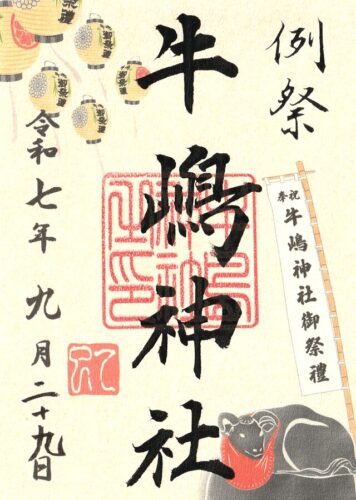 例祭
牛嶋神社
令和七年 九月二十九日
奉祝
牛嶋神社御祭禮
御祭禮